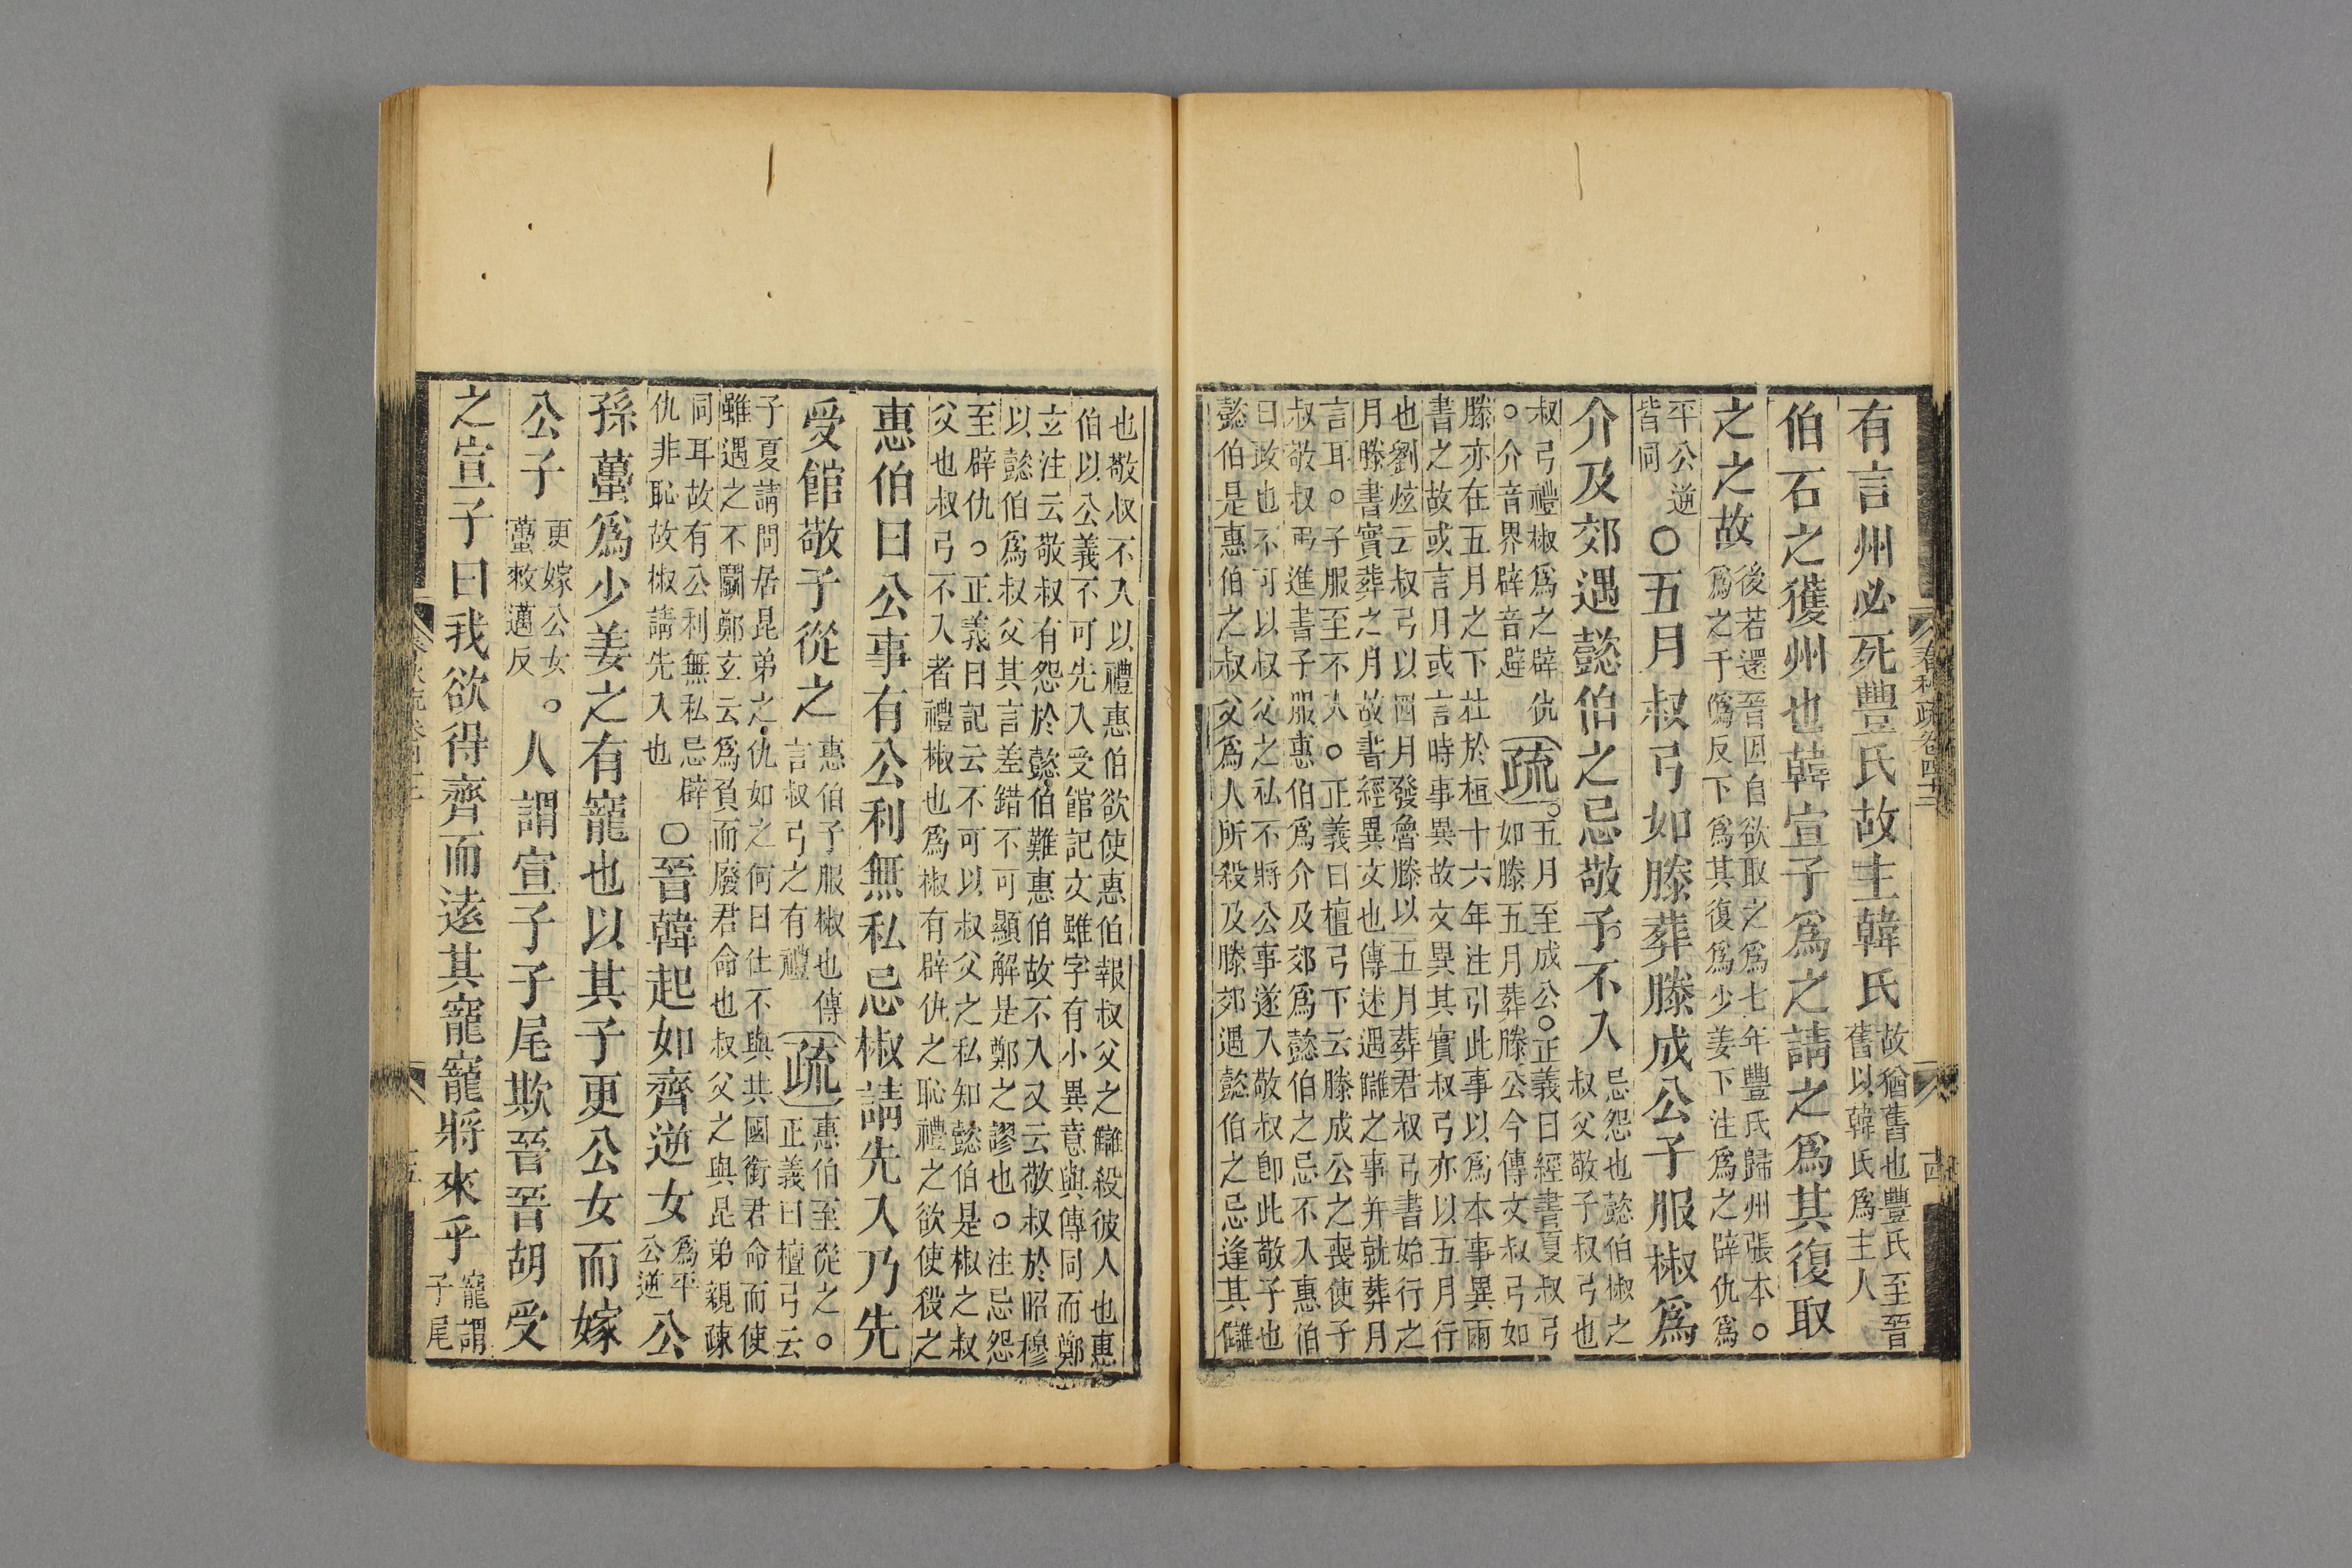 春秋疏卷四十二
有言州必死豐氏故主韓氏故猶舊也豐氏至晉
舊以韓氏爲主人
伯石之獲州也韓宣子爲之請之爲其復取
之之故後若還晉因自欲取之爲七年豐氏歸州張本○
爲之于僞反下爲其復爲少姜下注爲之辟仇爲
平公逆
皆同○五月叔弓如滕葬滕成公子服椒爲
介及郊遇懿伯之忌敬子不入忌怨也懿伯椒之
叔父敬子叔弓也
叔弓禮椒爲之辟仇
○介音界辟音避疏○五月至成公○正義曰經書夏叔弓
如滕五月葬滕公今傳文叔弓如
滕亦在五月之下杜於桓十六年注引此事以爲本事異兩
書之故或言月或言時事異故文異其實叔弓亦以五月行
也劉炫云叔弓以四月發魯滕以五月葬君叔弓書始行之
月滕書實葬之月故書經異文也傳述遇讎之事并就葬月
言耳○子服至不入○正義曰檀弓下云滕成公之喪使子
叔敬叔弔進書子服惠伯爲介及郊爲懿伯之忌不入惠伯
曰政也不可以叔父之私不將公事遂入敬叔卽此敬子也
懿伯是惠伯之叔父爲人所殺及滕郊遇懿伯之忌逢其讎
也敬叔不入以禮惠伯欲使惠伯報叔父之讎殺彼人也惠
伯以公義不可先入受館記文雖字有小異意與傳同而鄭
玄注云敬叔有怨於懿伯難惠伯故不入又云敬叔於昭穆
以懿伯爲叔父其言差錯不可顯解是鄭之謬也○注忌怨
至辟仇○正義曰記云不可以叔父之私知懿伯是椒之叔
父也叔弓不入者禮椒也爲椒有辟仇之恥禮之欲使殺之
惠伯曰公事有公利無私忌椒請先入乃先
受館敬子從之惠伯子服椒也傳
言叔弓之有禮疏惠伯至從之○
正義曰檀弓云
子夏請問居昆弟之仇如之何曰仕不與共國銜君命而使
雖遇之不鬭鄭玄云爲負而廢君命也叔父之與昆弟親疎
同耳故有公利無私忌辟
仇非恥故椒請先入也○晉韓起如齊逆女爲平
公逆公
孫蠆爲少姜之有寵也以其子更公女而嫁
公子更嫁公女
蠆敕邁反。人謂宣子子尾欺晉晉胡受
之宣子曰我欲得齊而遠其寵寵將來乎寵謂
子尾